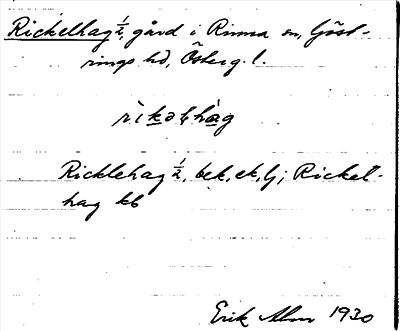 Rickelhag ½, gård i Rinna sn, Göst-
rings hd, Österg. l.
rìkəlhàg
Ricklehag ½, bek, ek, lj; Rickel-
hag kb
Erik Alm 1930